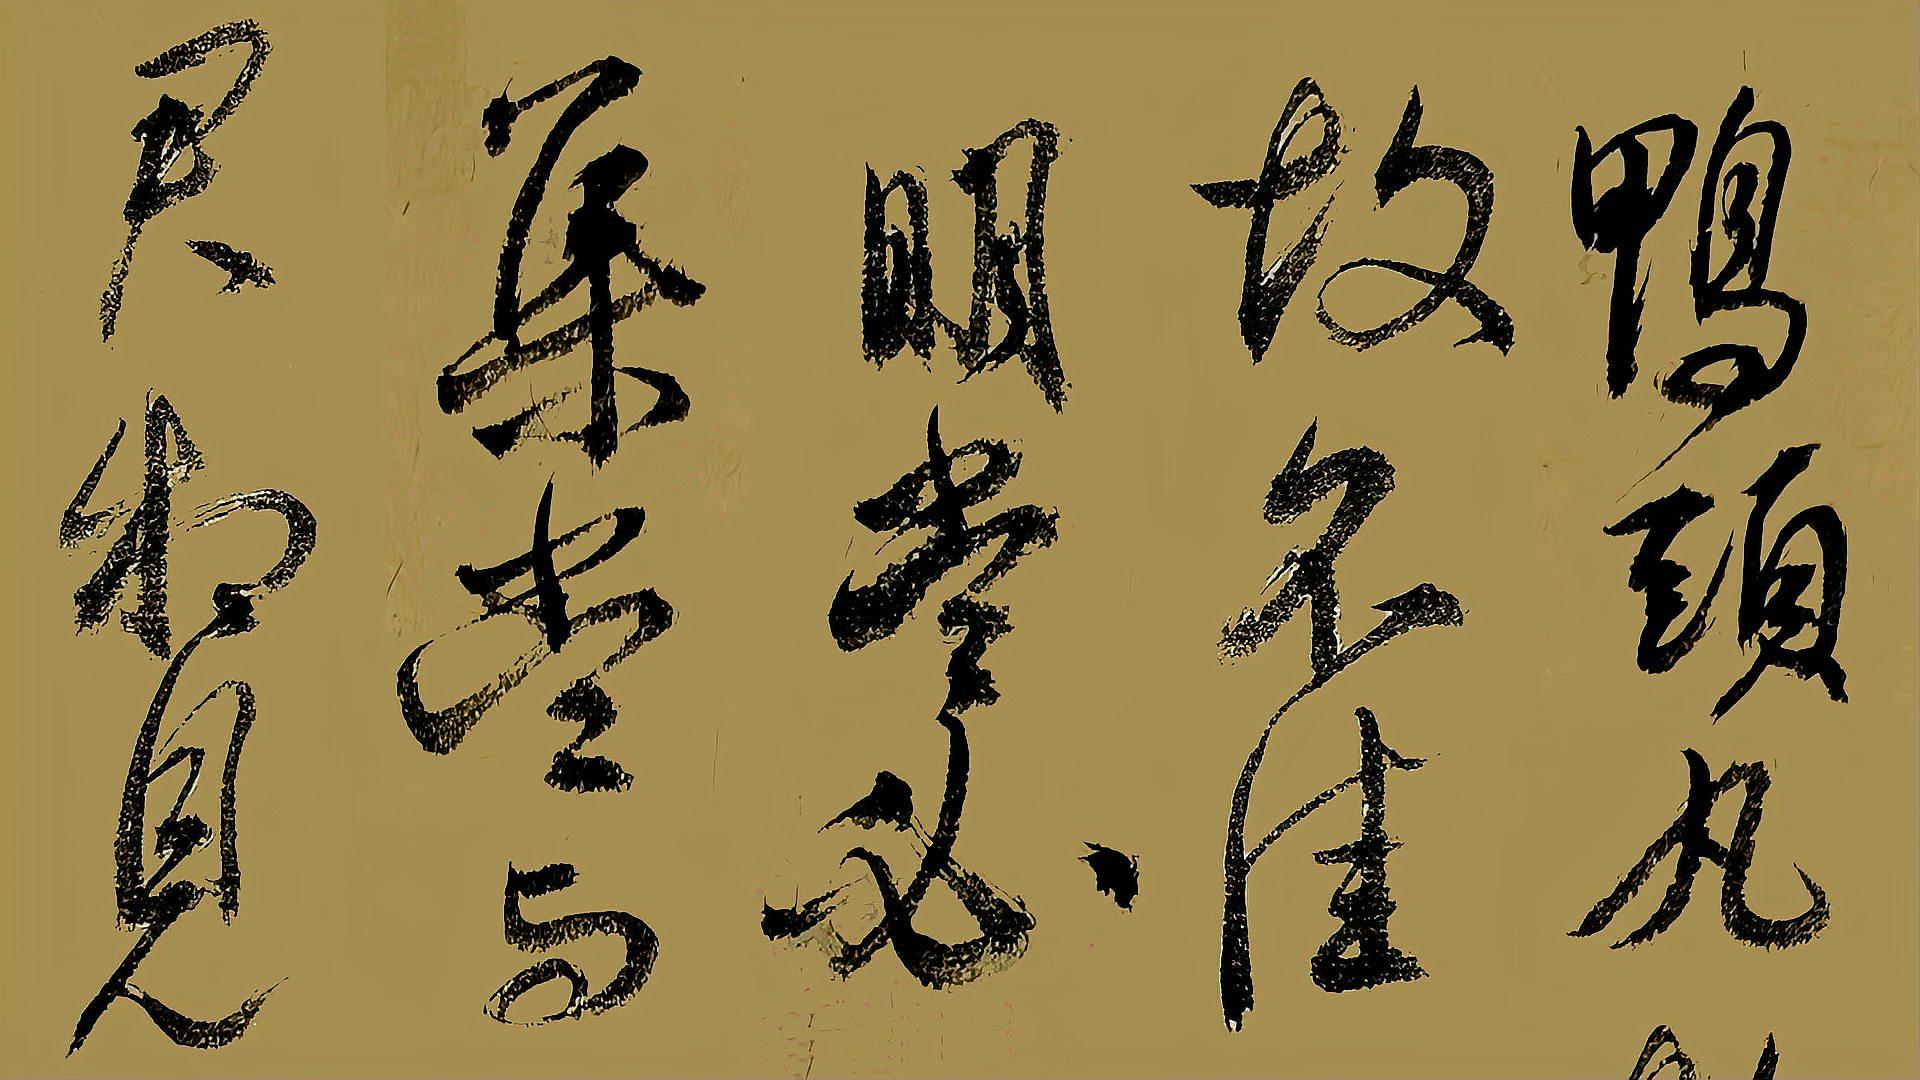 鴨頭丸
故不佳
明當必
集當与
君相見